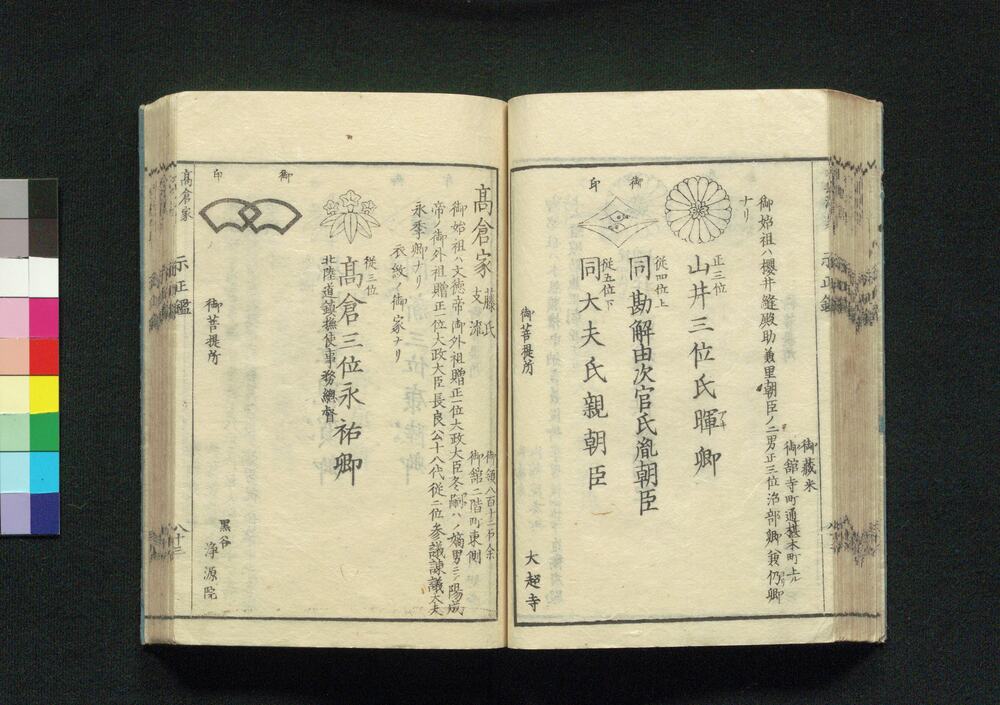 御藏米
御舘寺町通椹木町上ル
御始祖ハ櫻井縫殿助兼里朝臣ノ二男正三位治部卿兼仍卿
ナリ
正三位
山井三位氏暉卿
アキ
從四位上
同 勘解由次官氏胤朝臣
從五位下
同 大夫氏親朝臣
御印
御菩提所
大超寺
高倉家
藤氏
支流
御領八百十二石余
御舘二階町東側
御始祖ハ文徳帝ノ御外祖贈正一位大政大臣冬嗣公ノ嫡男ニテ陽成
帝ノ御外祖贈正一位大政大臣長良公十八代從二位参議諫議大夫
永季卿ナリ
衣紋ノ御家ナリ
從三位
高倉三位永祐卿
北陸道鎮撫使事務總督
御印
御菩提所
黒谷
浄源院
高倉家
示正鑑
八十三